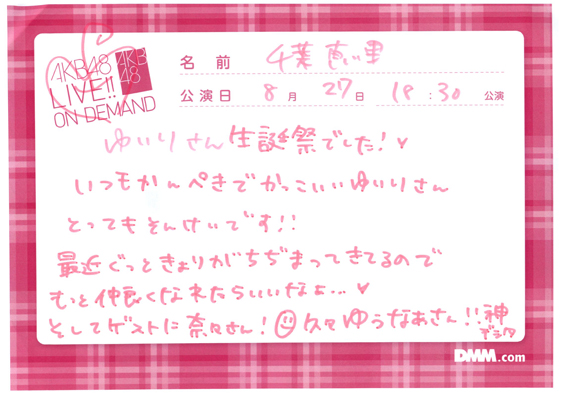 AKB48
LIVE!!
ON DEMAND
AKB
48
名前 千葉恵里
公演日 8月 27日 18:30 公演
ゆいりさん生誕祭でした!♥
いつもかんぺきでかっこいいゆいりさん
とってもそんけいです!!
最近ぐっときょりがちぢまってきてるので
もっと仲良くなれたらいいなぁ...♥
そしてゲストに奈々さん!久々ゆうなぁさん!!神
でした
DMM.com